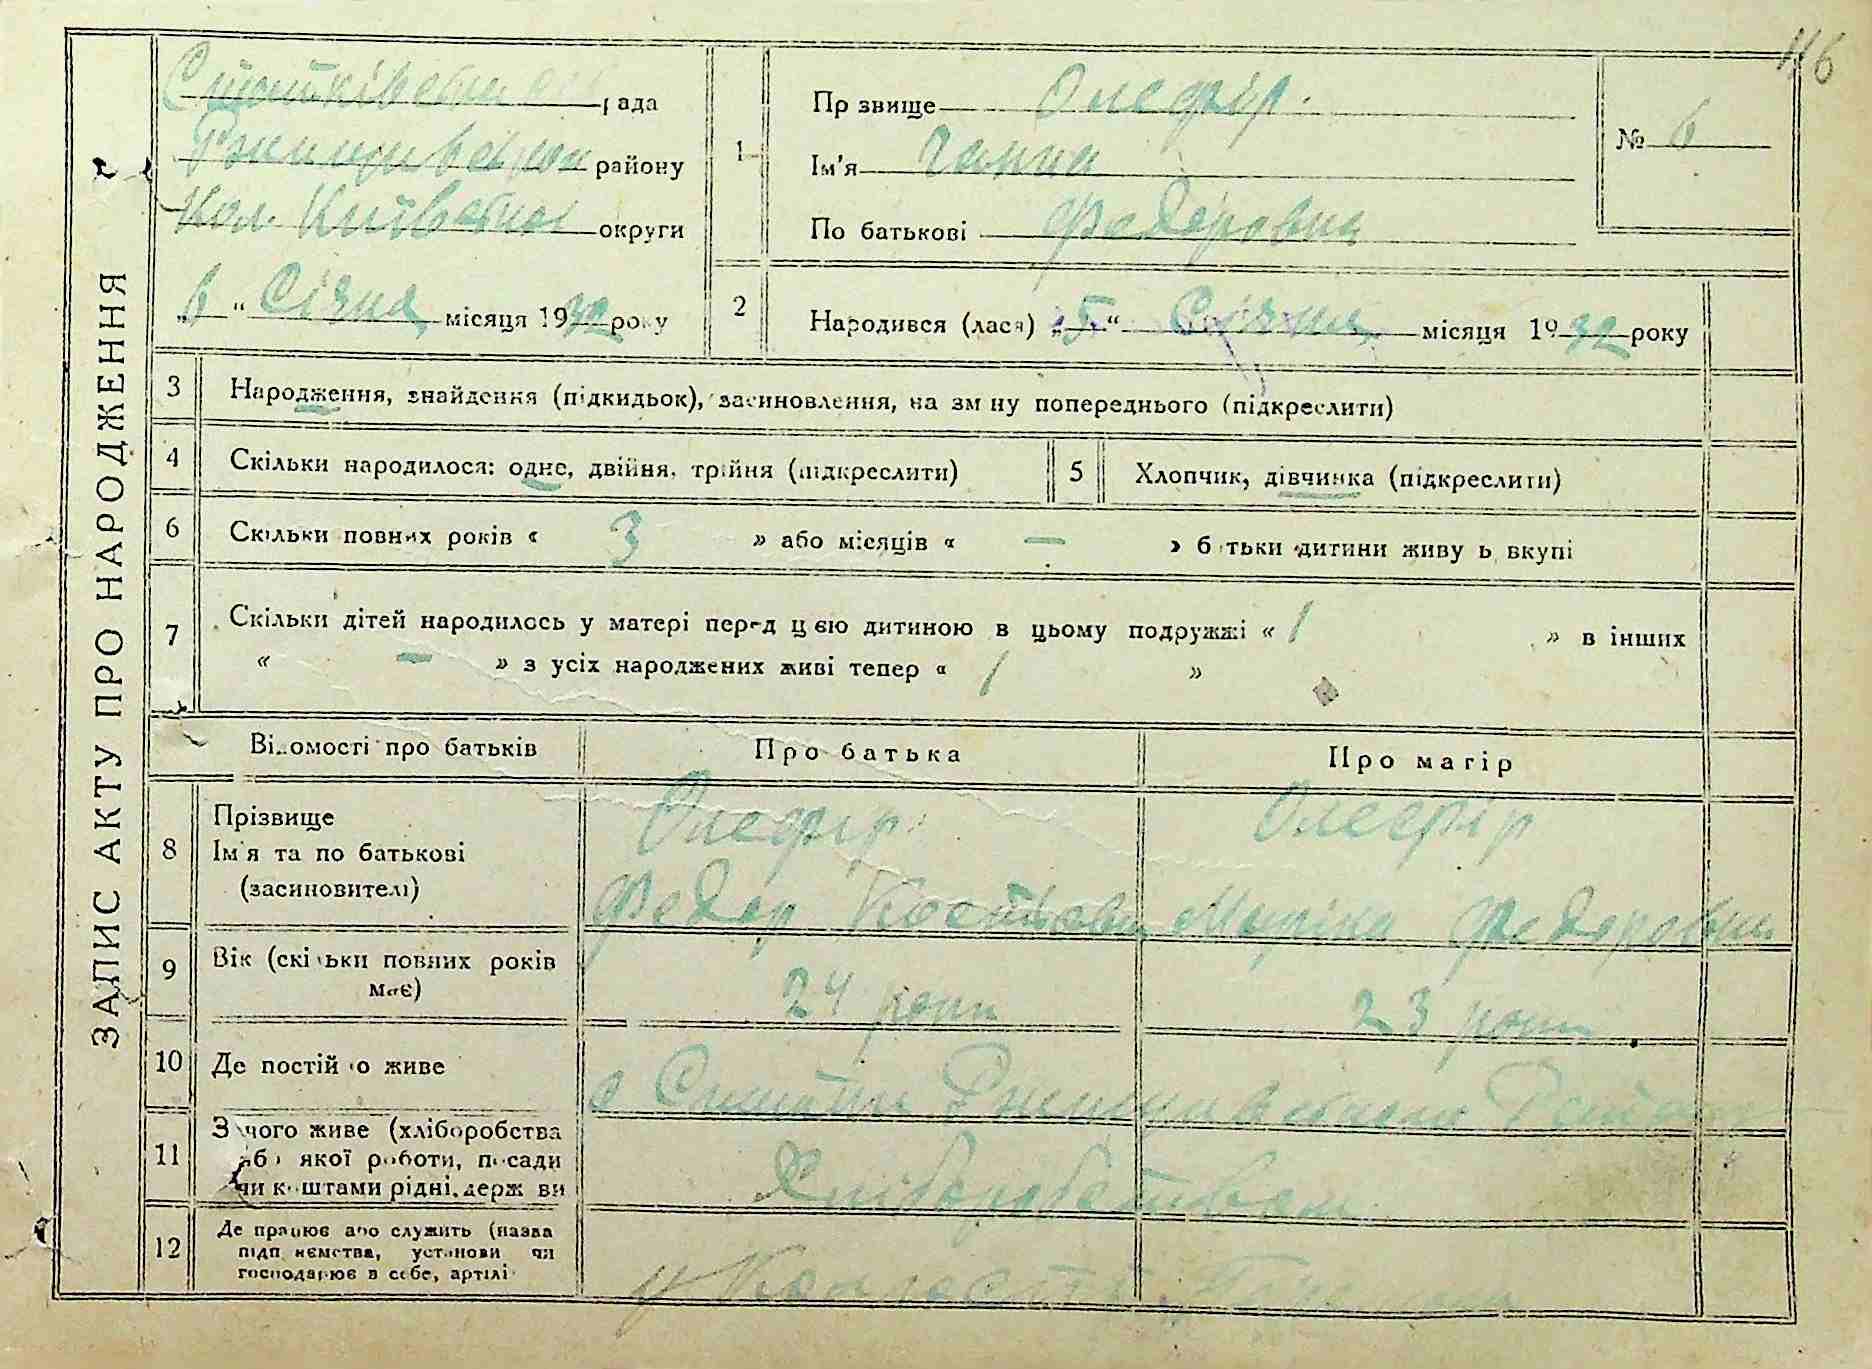 116
ЗАПИС АКТУ ПРО НАРОДЖЕННЯ
рада
району
Кол. Київської округи
„6“ Січня місяця 1932 року
1
Прізвище Олефір
Ім'я Ганна
По батькові Федоровна
№ 6
2
Народився (лася) „5“ Січня місяця 1932 року
3 Народження, знайдення (підкидьок), засиновлення, на зміну попереднього (підкреслити)
4 Скільки народилося: одне, двійня, трійня (підкреслити)
5 Хлопчик, дівчинка (підкреслити)
6 Скільки повних років « 3 » або місяців « — » батьки дитини живуть вкупі
7 Скільки дітей народилось у матері перед цією дитиною в цьому подружжі « 1 » в інших
« — » з усіх народжених живі тепер « 1 »
Відомості про батьків
Про батька
Про матір
8 Прізвище
Ім'я та по батькові
(засиновителі)
Олефір
Федор
Олефір
Маріна Федоровна
9 Вік (скільки повних років
має)
24 роки
23 роки
10 Де постійно живе
11 З чого живе (хліборобства
або якої роботи, посади
чи коштами рідні, держави
Хліборобством
12 Де працює або служить (назва
підприємства, установи чи
господарює в себе, артілі